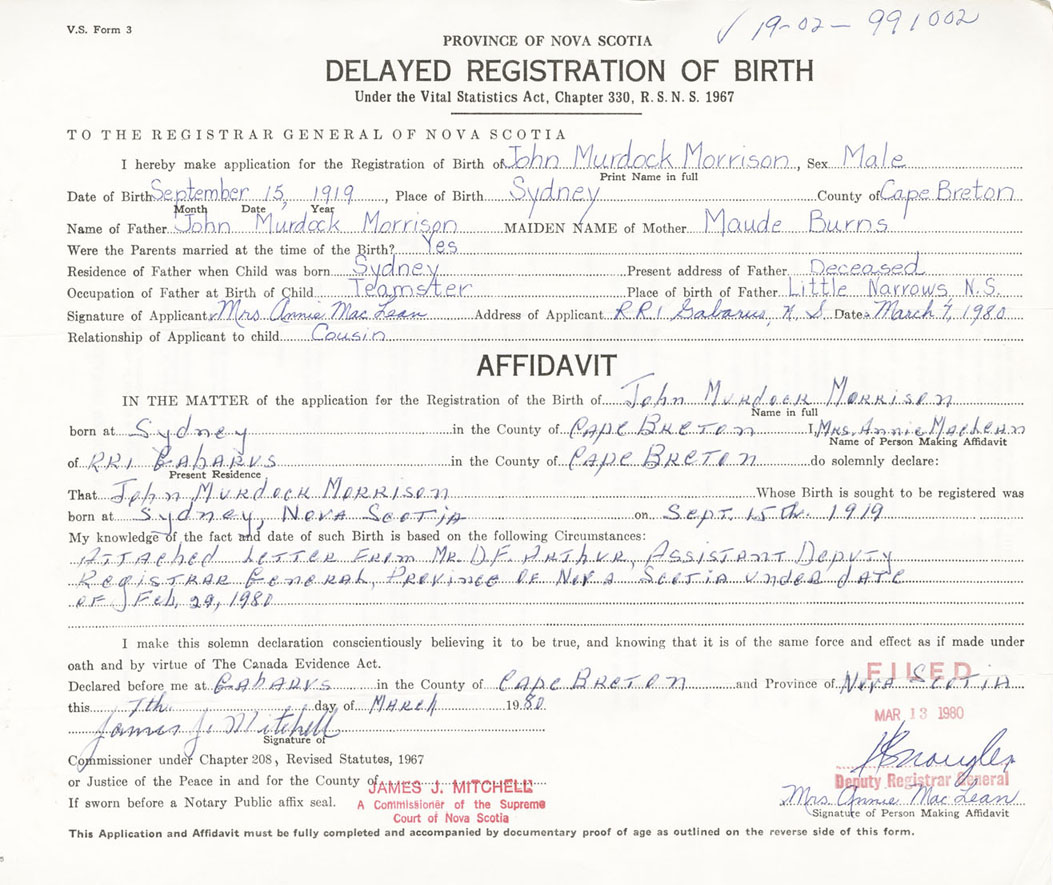 V.S. Form 3
✓ 19-02-991002
PROVINCE OF NOVA SCOTIA
DELAYED REGISTRATION OF BIRTH
Under the Vital Statistics Act, Chapter 330, R.S.N.S. 1967
TO THE REGISTRAR GENERAL OF NOVA SCOTIA
I hereby make application for the Registration of Birth of John Murdock Morrison, Sex Male
Print Name in full
Date of Birth September 15, 1919, Place of Birth Sydney County of Cape Breton
Month Date Year
Name of Father John Murdock Morrison MAIDEN NAME of Mother Maude Burns
Were the Parents married at the time of the Birth? Yes
Residence of Father when Child was born Sydney Present address of Father Deceased
Occupation of Father at Birth of Child Teamster Place of birth of Father Little Narrows N.S.
Signature of Applicant Mrs. Annie MacLean Address of Applicant RR1 Gabarus, N.S. Date March 7, 1980
Relationship of Applicant to child Cousin
AFFIDAVIT
IN THE MATTER of the application for the Registration of the Birth of John Murdock Morrison
Name in full
born at Sydney in the County of Cape Breton I, Mrs. Annie MacLean
Name of Person Making Affidavit
of RR1 Gabarus in the County of Cape Breton do solemnly declare:
Present Residence
That John Murdock Morrison Whose Birth is sought to be registered was
born at Sydney, Nova Scotia on Sept. 15th. 1919
My knowledge of the fact and date of such Birth is based on the following Circumstances:
Attached Letter From Mr. D.F. Arthur, Assistant Deputy
Registrar General, Province of Nova Scotia under date
of Feb. 29, 1980
I make this solemn declaration conscientiously believing it to be true, and knowing that it is of the same force and effect as if made under
oath and by virtue of The Canada Evidence Act.
FILED
Declared before me at Gabarus in the County of Cape Breton and Province of Nova Scotia
this 7th. day of March 1980
MAR 13 1980
James J. Mitchell
Signature of
Commissioner under Chapter 208, Revised Statutes, 1967
or Justice of the Peace in and for the County of
JAMES J. MITCHELL
Deputy Registrar General
If sworn before a Notary Public affix seal.
A Commissioner of the Supreme
Court of Nova Scotia
Mrs. Annie MacLean
Signature of Person Making Affidavit
This Application and Affidavit must be fully completed and accompanied by documentary proof of age as outlined on the reverse side of this form.